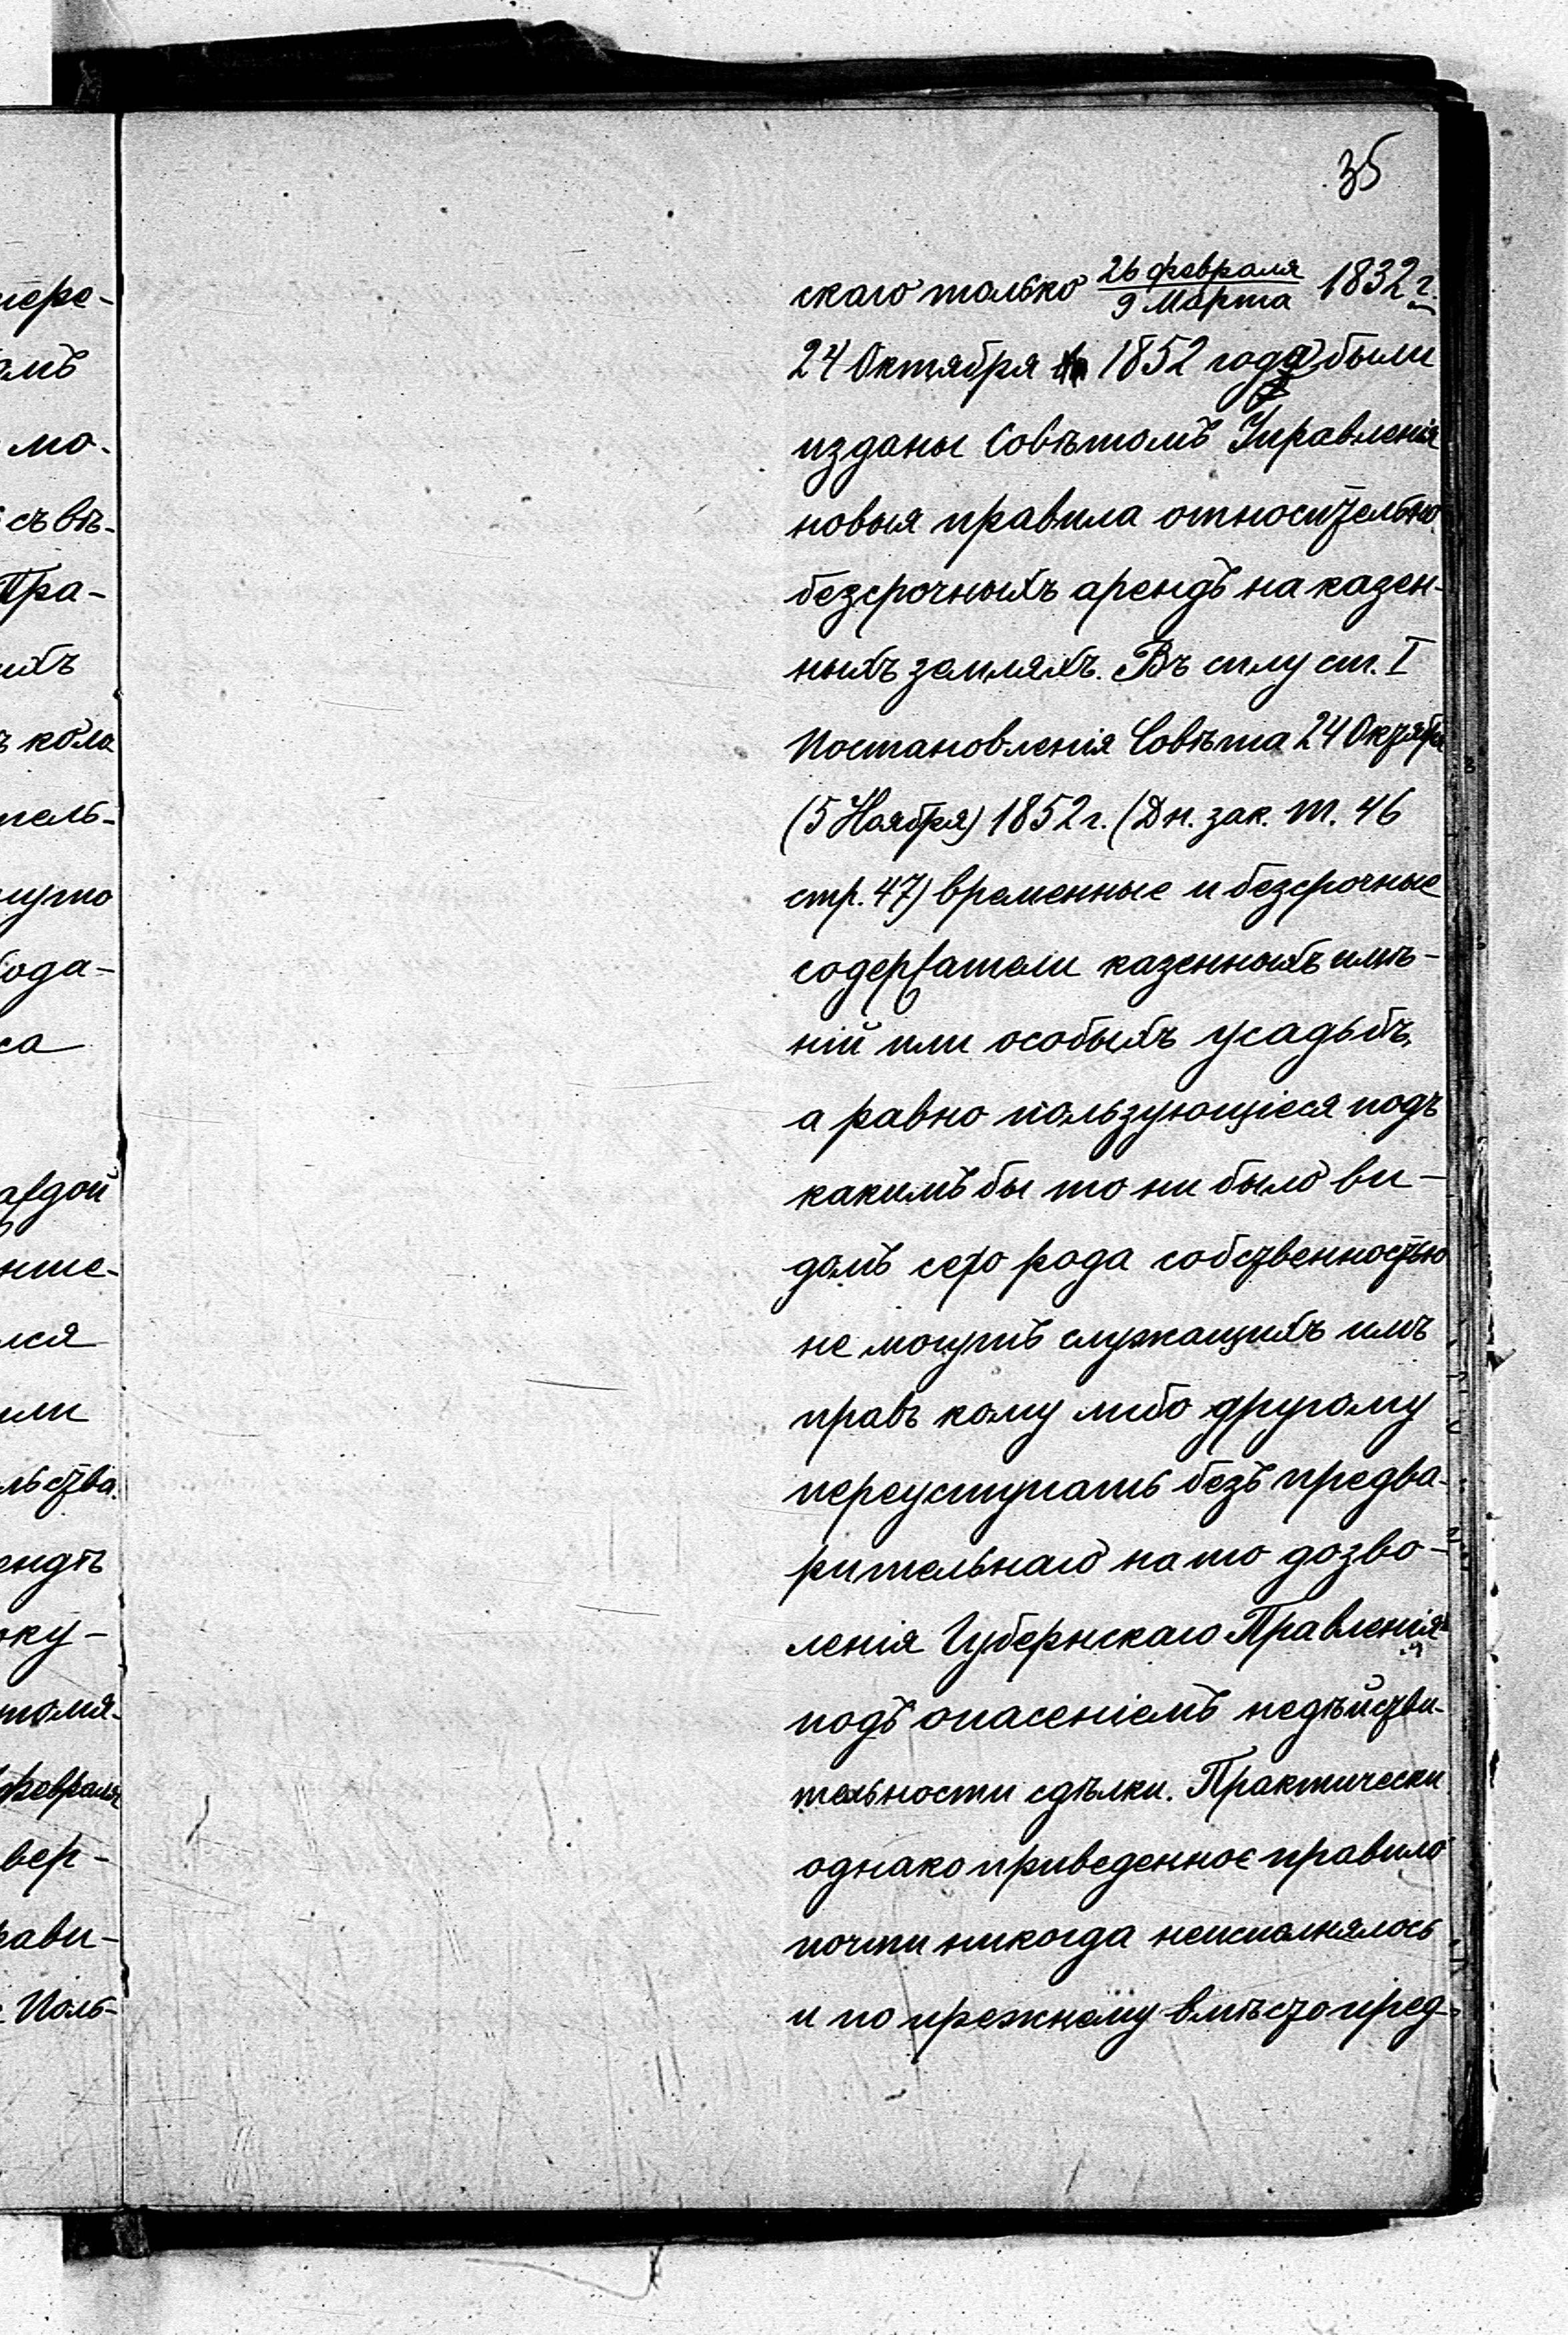 35
скаго только 26 февраля / 9 Марта 1832 г.
24 Октября 1852 года были
изданы Совѣтомъ Управленія
новыя правила относительно
безсрочныхъ арендъ на казен-
ныхъ земляхъ. Въ силу ст. I
Постановленія Совѣта 24 Октября
(5 Ноября) 1852 г. (Дн. зак. т. 46
стр. 47) временные и безсрочные
содержатели казенныхъ имѣ-
ній или особыхъ усадьбъ,
а равно пользующіеся подъ
какимъ бы то ни было ви-
домъ сего рода собственностью
не могутъ служащихъ имъ
правъ кому либо другому
переуступать безъ предва-
рительнаго на то дозво-
ленія Губернскаго Правленія
подъ опасеніемъ недѣйстви-
тельности сдѣлки. Практически
однако приведенное правило
почти никогда неисполнялось
и по прежнему вмѣсто пред-
пере-
омъ
мо-
съ вѣ-
Пра-
ихъ
ъ кола
тель-
ода-
са
аждой
ише-
лся
или
льства.
ендъ
оку-
толя-
февраля
вер-
рави-
Поль-